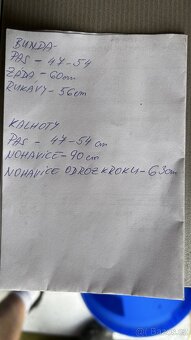 BUNDA-
PAS - 47-54
ZÁDA - 60cm
RUKÁVY - 56cm
KALHOTY
PAS - 47-54 cm
NOHAVICE - 90 cm
NOHAVICE OD ROZKROKU - 63cm